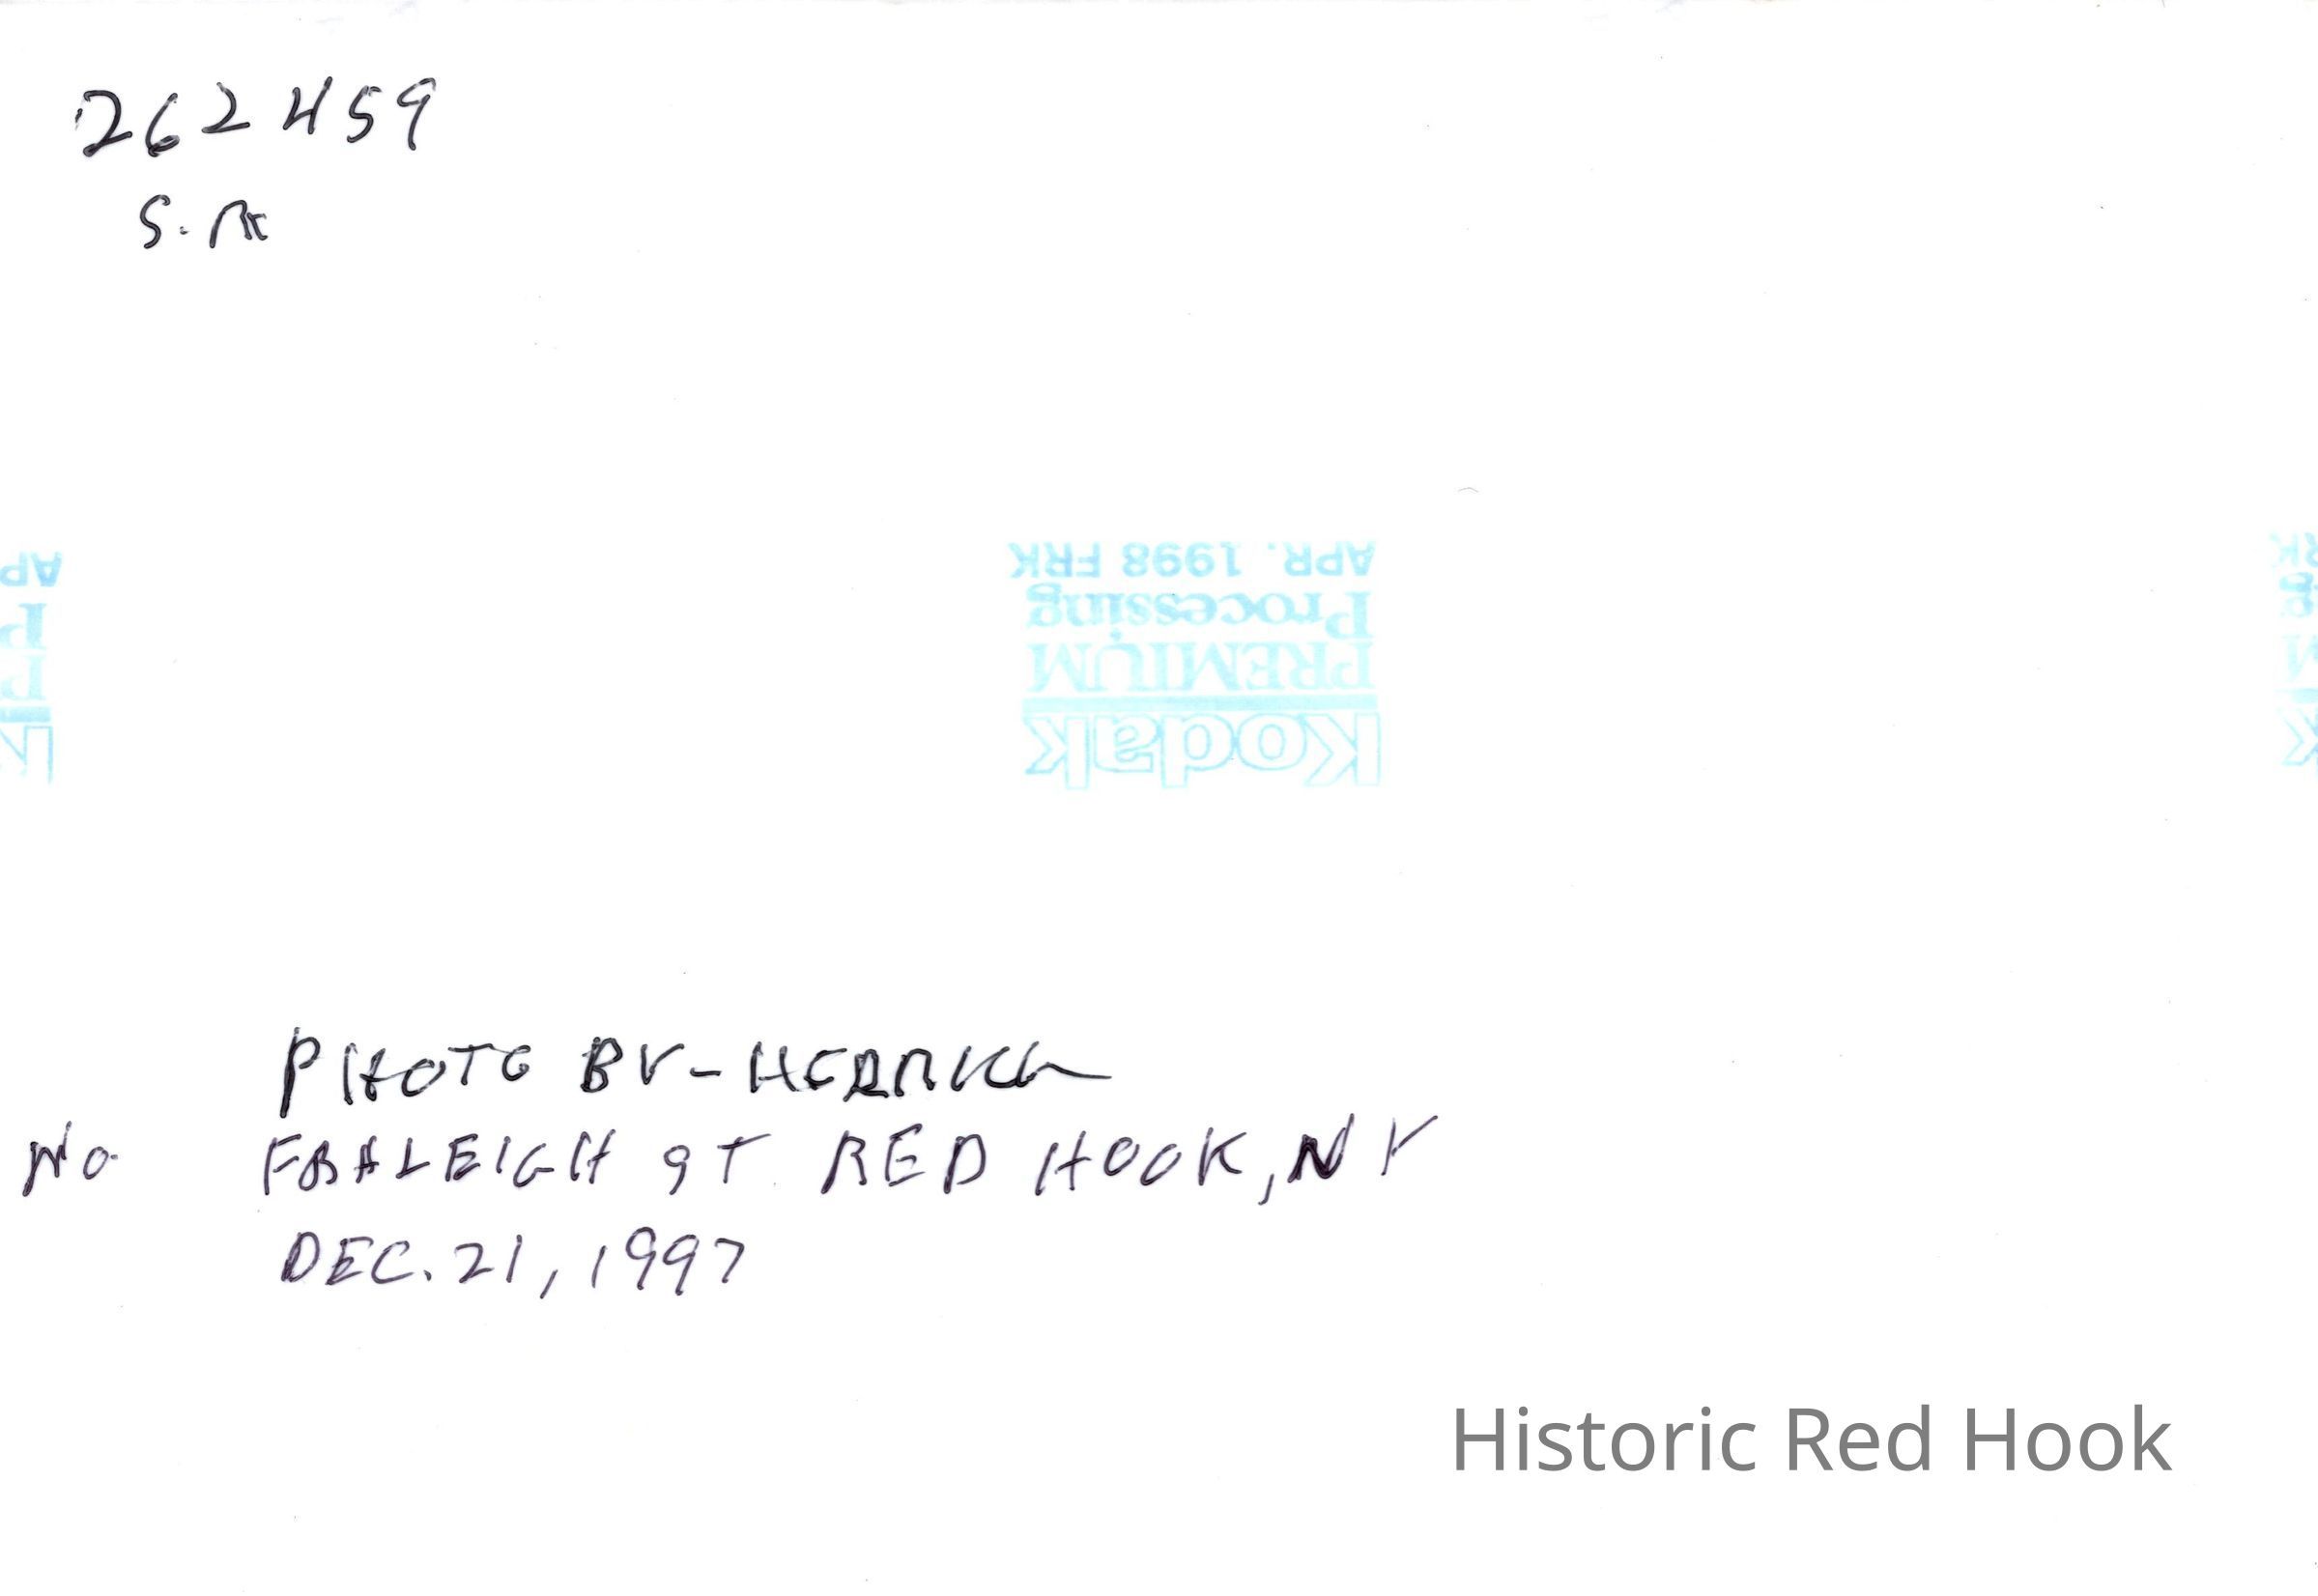 262459
S. R
APR. 1998 FRK
Processing
PREMIUM
Kodak
PHOTO BY - HERRICK
NO. FRALEIGH ST RED HOOK, NY
DEC. 21, 1997
Historic Red Hook